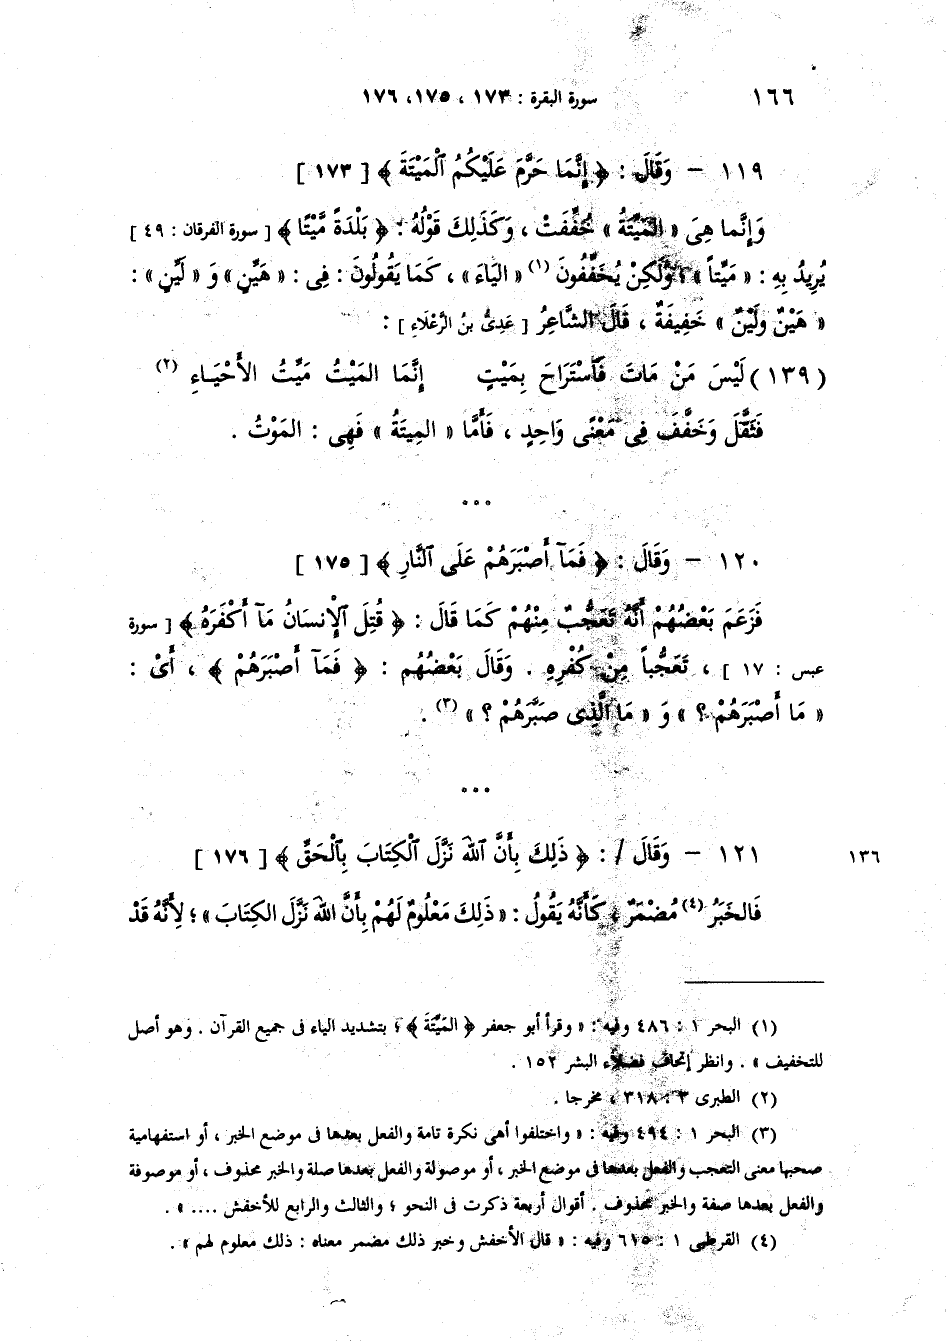 ١٦٦ سورة البقرة : ١٧٣ ، ١٧٥، ١٧٦
١١٩ – وَقَالَ : ﴿ إِنَّمَا حَرَّمَ عَلَيْكُمُ ٱلْمَيْتَةَ ﴾ [ ١٧٣ ]
وَإِنَّما هِىَ « المَيِّتَةُ » خُفِّفَتْ ، وَكَذَلِكَ قَوْلُهُ : ﴿ بَلْدَةً مَّيْتًا ﴾ [ سورة الفرقان : ٤٩ ]
يُرِيدُ بِهِ : « مَيِّتاً » ؛ وَلَكِنْ يُخَفِّفُونَ (١) « اليَاءَ » ، كَمَا يَقُولُونَ : فِى : « هَيِّنٍ » وَ « لَيِّنٍ » :
« هَيْنٌ ولَيْنٌ » خَفِيفَةٌ ، قَالَ الشَّاعِرُ [ عَدِىُّ بنُ الرَّعْلَاءِ ] :
(١٣٩) لَيْسَ مَنْ مَاتَ فَٱسْتَرَاحَ بِمَيْتٍ إِنَّمَا المَيْتُ مَيِّتُ الأَحْيَـاءِ (٢)
فَثَقَّلَ وَخَفَّفَ فِى مَعْنًى وَاحِدٍ ، فَأَمَّا « المِيتَةُ » فَهِى : المَوْتُ .
• • •
١٢٠ – وَقَالَ : ﴿ فَمَآ أَصْبَرَهُمْ عَلَى ٱلنَّارِ ﴾ [ ١٧٥ ]
فَزَعَمَ بَعْضُهُمْ أَنَّهُ تَعَجُّبٌ مِنْهُمْ كَمَا قَالَ : ﴿ قُتِلَ ٱلْإِنسَانُ مَآ أَكْفَرَهُ ﴾ [ سورة
عبس : ١٧ ] ، تَعَجُّباً مِنْ كُفْرِهِ . وَقَالَ بَعْضُهُم : ﴿ فَمَآ أَصْبَرَهُمْ ﴾ ، أَىْ :
« مَا أَصْبَرَهُمْ ؟ » وَ « مَا الَّذِى صَبَّرَهُمْ ؟ » (٣) .
• • •
١٢١ – وَقَالَ / : ﴿ ذَلِكَ بِأَنَّ ٱللهَ نَزَّلَ ٱلْكِتَابَ بِٱلْحَقِّ ﴾ [ ١٧٦ ] ١٣٦
فَالخَبَرُ (٤) مُضْمَرٌ ، كَأَنَّهُ يَقُولُ : « ذَلِكَ مَعْلُومٌ لَهُمْ بِأَنَّ اللهَ نَزَّلَ الكِتَابَ » ؛ لِأَنَّهُ قَدْ
(١) البحر ١ : ٤٨٦ وفيه : « وقرأ أبو جعفر ﴿ المَيِّتَةَ ﴾ ؛ بتشديد الياء فى جميع القرآن . وهو أصل
للتخفيف » . وانظر إتحاف فضلاء البشر ١٥٢ .
(٢) الطبرى ٣ : ٣١٨ ، مخرجا .
(٣) البحر ١ : ٤٩٤ وفيه : « واختلفوا أهى نكرة تامة والفعل بعدها فى موضع الخبر ، أو استفهامية
صحبها معنى التعجب والفعل بعدها فى موضع الخبر ، أو موصولة والفعل بعدها صلة والخبر محذوف ، أو موصوفة
والفعل بعدها صفة والخبر محذوف . أقوال أربعة ذكرت فى النحو ؛ والثالث والرابع للأخفش .... » .
(٤) القرطبى ١ : ٦١٥ وفيه : « قال الأخفش وخبر ذلك مضمر معناه : ذلك معلوم لهم » .